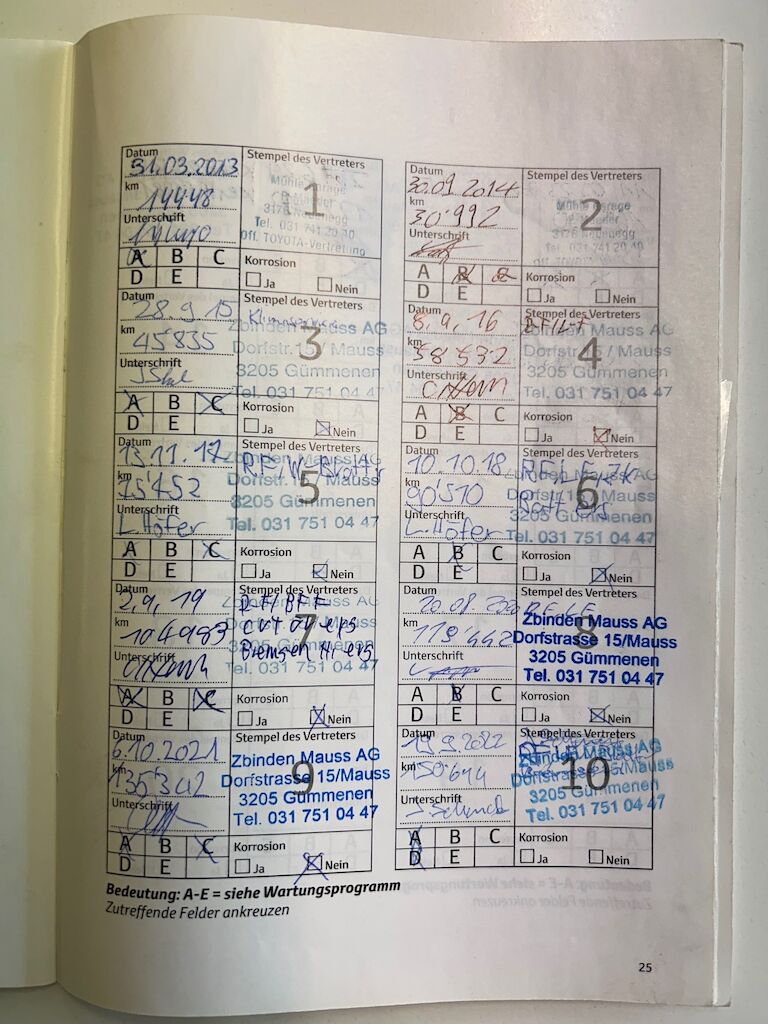 Datum
31.03.2013
km
14448
Unterschrift
A B C
D E
Stempel des Vertreters
1
Mühle Garage
Tel. 031 741 20 40
Off. TOYOTA-Vertretung
Korrosion
Ja Nein
Datum
30.09.2014
km
30'992
Unterschrift
A B C
D E
Stempel des Vertreters
2
Mühle Garage
Korrosion
Ja Nein
Datum
28.9.15
km
45835
Unterschrift
A B C
D E
Stempel des Vertreters
3
Zbinden Mauss AG
Dorfstr. 15 / Mauss
3205 Gümmenen
Tel. 031 751 04 47
Korrosion
Ja Nein
Datum
8.9.16
km
Unterschrift
A B C
D E
Stempel des Vertreters
4
Zbinden Mauss AG
Dorfstr. 15 / Mauss
3205 Gümmenen
Tel. 031 751 04 47
Korrosion
Ja Nein
Datum
13.11.17
km
75'452
Unterschrift
L. Höfer
A B C
D E
Stempel des Vertreters
5
Zbinden Mauss AG
Dorfstr. 15 / Mauss
3205 Gümmenen
Tel. 031 751 04 47
Korrosion
Ja Nein
Datum
10.10.18
km
90'510
Unterschrift
L. Höfer
A B C
D E
Stempel des Vertreters
6
Zbinden Mauss AG
Dorfstr. 15 / Mauss
3205 Gümmenen
Tel. 031 751 04 47
Korrosion
Ja Nein
Datum
2.9.19
km
104983
Unterschrift
A B C
D E
Stempel des Vertreters
7
Zbinden Mauss AG
Tel. 031 751 04 47
Korrosion
Ja Nein
Datum
20.08.2020
km
119'442
Unterschrift
A B C
D E
Stempel des Vertreters
8
Zbinden Mauss AG
Dorfstrasse 15/Mauss
3205 Gümmenen
Tel. 031 751 04 47
Korrosion
Ja Nein
Datum
6.10.2021
km
135'342
Unterschrift
A B C
D E
Stempel des Vertreters
9
Zbinden Mauss AG
Dorfstrasse 15/Mauss
3205 Gümmenen
Tel. 031 751 04 47
Korrosion
Ja Nein
Datum
19.9.2022
km
150'644
Unterschrift
A B C
D E
Stempel des Vertreters
10
Zbinden Mauss AG
Dorfstrasse 15/Mauss
3205 Gümmenen
Tel. 031 751 04 47
Korrosion
Ja Nein
Bedeutung: A-E = siehe Wartungsprogramm
Zutreffende Felder ankreuzen
25